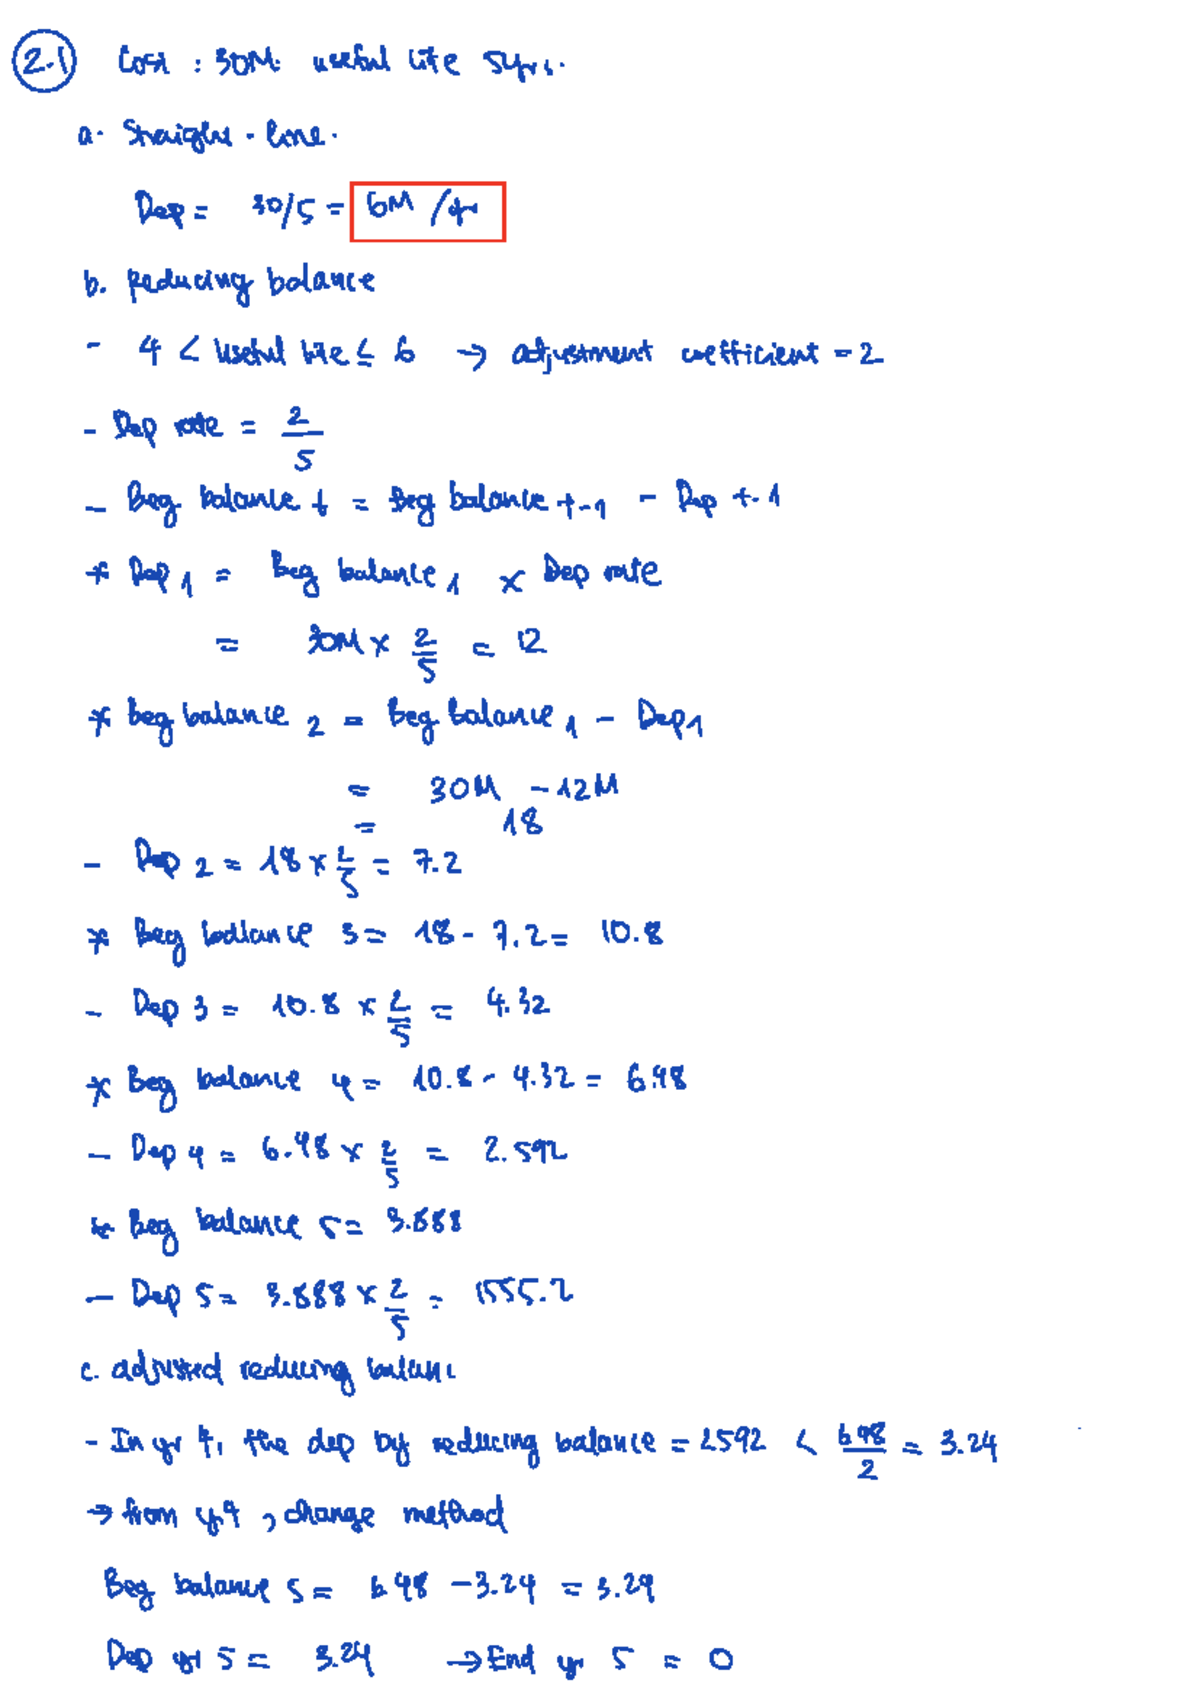 2.1 Cost : 30M. useful life 5yrs.
a. Straight - line.
Dep = 30/5 = 6M /yr
b. Reducing balance
- 4 < Useful life ≤ 6 → adjustment coefficient = 2
- Dep rate = 2/5
- Beg. balance t = Beg balance t-1 - Dep t-1
* Dep 1 = Beg balance 1 x Dep rate
= 30M x 2/5 = 12
* Beg balance 2 = Beg Balance 1 - Dep 1
= 30M - 12M
= 18
- Dep 2 = 18 x 2/5 = 7.2
* Beg balance 3 = 18 - 7.2 = 10.8
- Dep 3 = 10.8 x 2/5 = 4.32
* Beg balance 4 = 10.8 - 4.32 = 6.48
- Dep 4 = 6.48 x 2/5 = 2.592
* Beg balance 5 = 3.888
- Dep 5 = 3.888 x 2/5 = 1555.2
c. adjusted reducing balanc
- In yr 4, the dep by reducing balance = 2592 < 6.48/2 = 3.24
→ from yr4, change method
Beg balance 5 = 6.48 - 3.24 = 3.24
Dep yr 5 = 3.24 → End yr 5 = 0